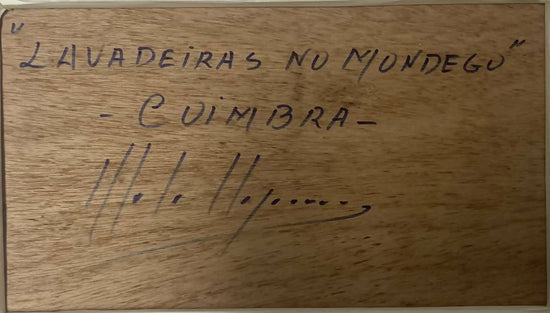 "LAVADEIRAS NO MONDEGO"
- COIMBRA -